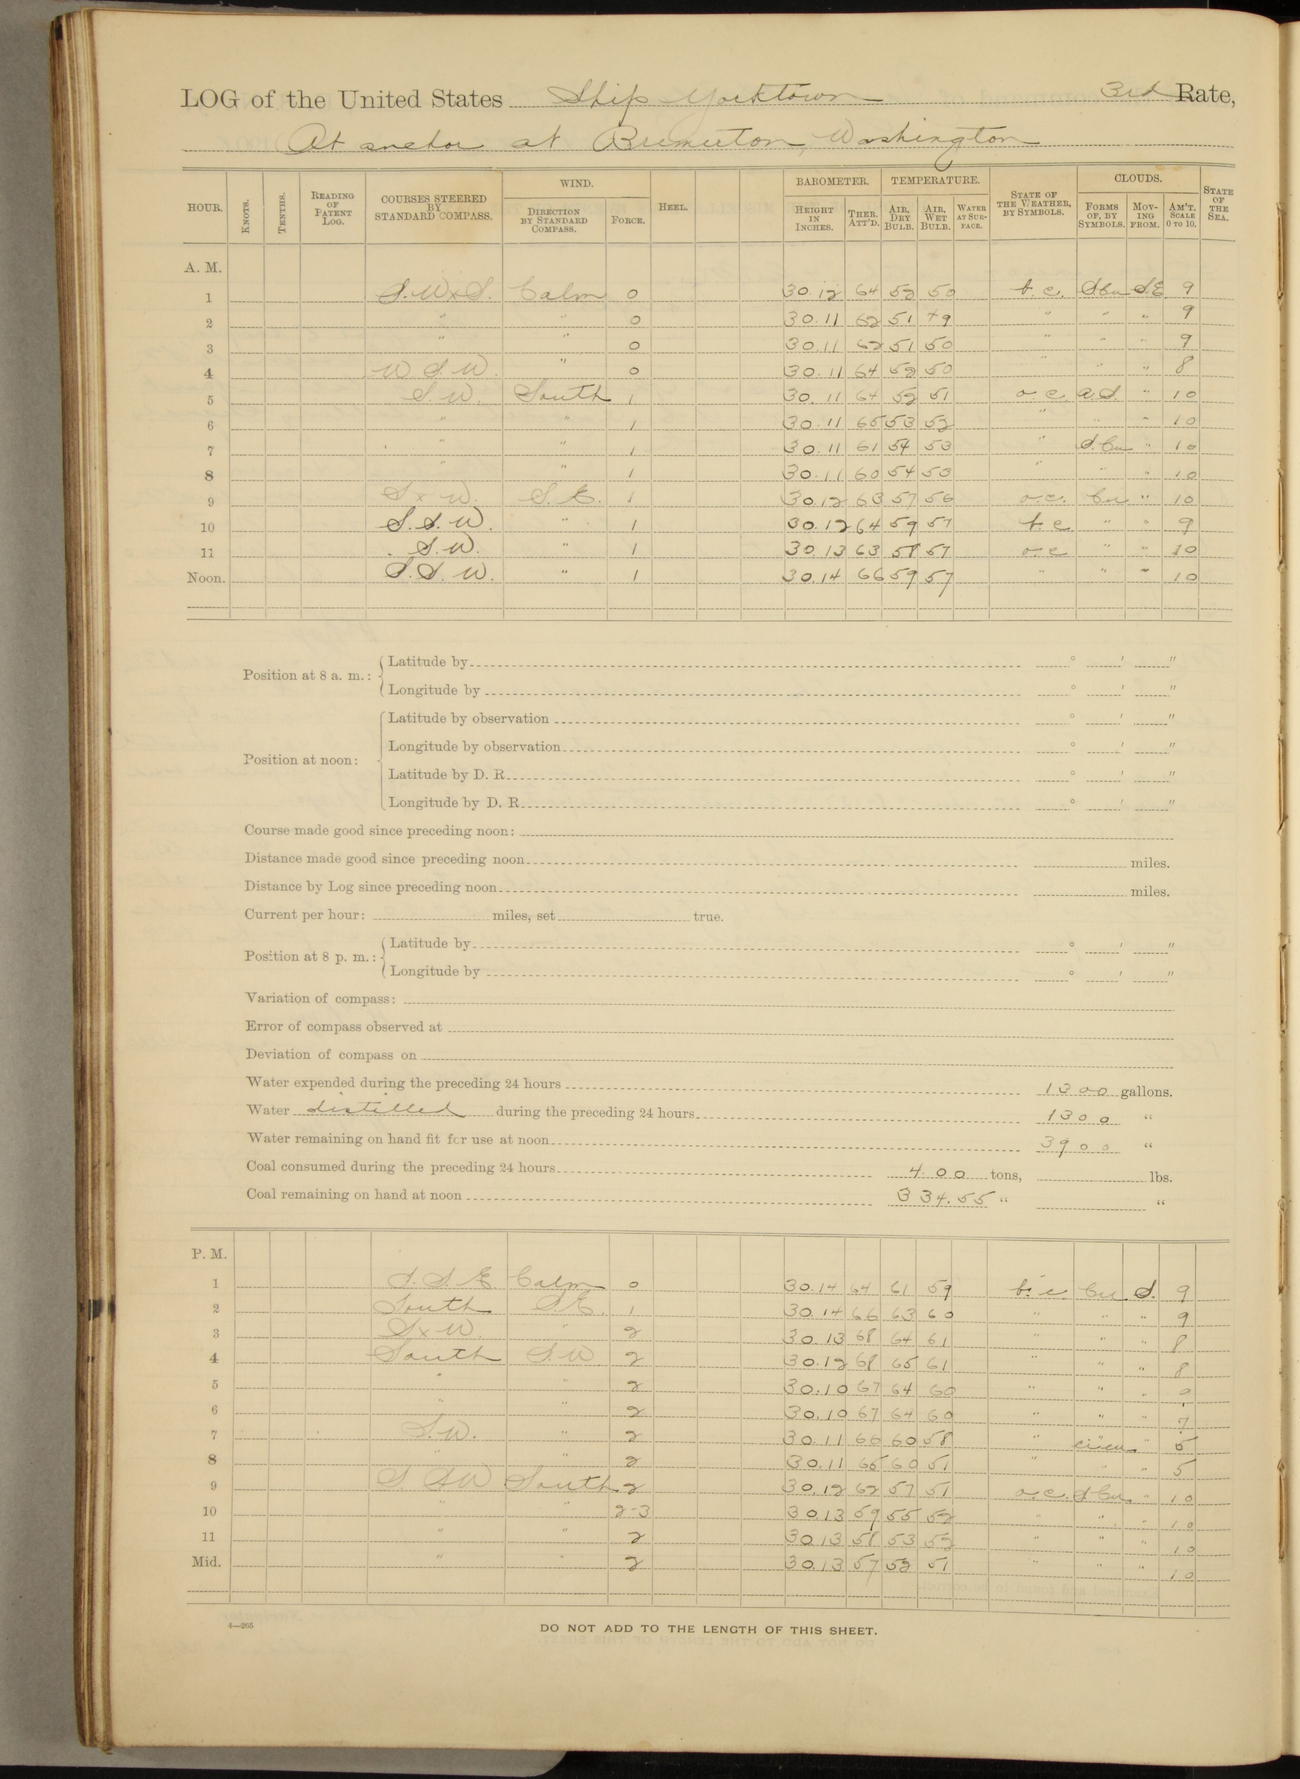 LOG of the United States Ship Yorktown 3rd Rate,
At anchor at Bremerton, Washington
HOUR. KNOTS. TENTHS. READING OF PATENT LOG. COURSES STEERED BY STANDARD COMPASS. WIND. DIRECTION BY STANDARD COMPASS. FORCE. HEEL. BAROMETER. HEIGHT IN INCHES. THER. ATT'D. TEMPERATURE. AIR, DRY BULB. AIR, WET BULB. WATER AT SURFACE. STATE OF THE WEATHER, BY SYMBOLS. CLOUDS. FORMS OF, BY SYMBOLS. MOVING FROM. AM'T. SCALE 0 TO 10. STATE OF THE SEA.
A. M.
1 S.WxS. Calm 0 30.12 64 52 50 b.c. S.Cu SE 9
2 " " 0 30.11 62 51 49 " " " 9
3 " " 0 30.11 62 51 50 " " " 9
4 W.S.W. " 0 30.11 64 52 50 " " " 8
5 S.W. South 1 30.11 64 52 51 o.c. A.S. " 10
6 " " 1 30.11 65 53 52 " " " 10
7 " " 1 30.11 61 54 53 " S.Cu " 10
8 " " 1 30.11 60 54 53 " " " 10
9 SxW. S.E. 1 30.12 63 57 56 o.c. Cu " 10
10 S.S.W. " 1 30.12 64 59 57 b.c. " " 9
11 S.W. " 1 30.13 63 58 57 o.c " " 10
Noon. S.S.W. " 1 30.14 66 59 57 " " " 10
Position at 8 a. m.: Latitude by ° ' "
Longitude by ° ' "
Position at noon: Latitude by observation ° ' "
Longitude by observation ° ' "
Latitude by D. R. ° ' "
Longitude by D. R. ° ' "
Course made good since preceding noon:
Distance made good since preceding noon miles.
Distance by Log since preceding noon miles.
Current per hour: miles, set true.
Position at 8 p. m.: Latitude by ° ' "
Longitude by ° ' "
Variation of compass:
Error of compass observed at
Deviation of compass on
Water expended during the preceding 24 hours 1300 gallons.
Water distilled during the preceding 24 hours 1300 "
Water remaining on hand fit for use at noon 3900 "
Coal consumed during the preceding 24 hours 4.00 tons, lbs.
Coal remaining on hand at noon 334.55 " "
P. M.
1 S.S.E. Calm 0 30.14 64 61 59 b.c. Cu S. 9
2 South S.E. 1 30.14 66 63 60 " " " 9
3 SxW. " 2 30.13 68 64 61 " " " 8
4 South S.W 2 30.12 68 65 61 " " " 8
5 " " 2 30.10 67 64 60 " " "
6 " " 2 30.10 67 64 60 " " " 7
7 S.W. " 2 30.11 66 60 58 " cicu " 5
8 " " 2 30.11 65 60 51 " " " 5
9 South 2 30.12 62 57 51 o.c. S.Cu. " 10
10 " " 2-3 30.13 59 55 52 " " " 10
11 " " 2 30.13 58 53 52 " " " 10
Mid. " " 2 30.13 57 52 51 " " " 10
4—265
DO NOT ADD TO THE LENGTH OF THIS SHEET.